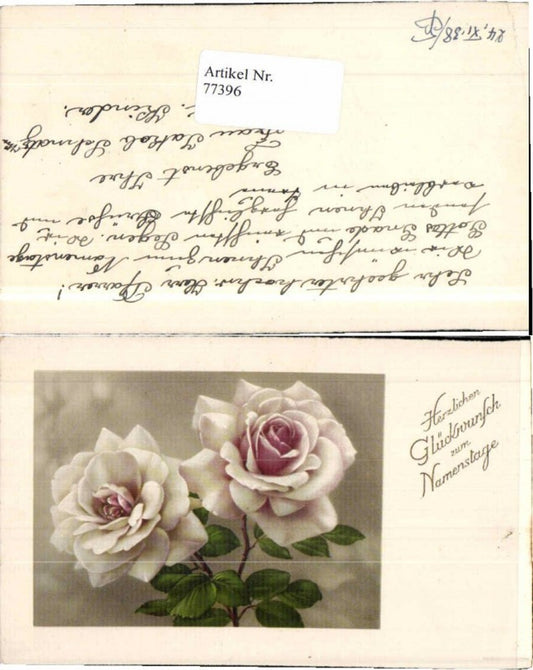 24. XI. 38
Artikel Nr.
77396
Sehr geehrter hochw. Herr Pfarrer!
Wir wünschen Ihnen zum Namenstage
Gottes Gnade und reichsten Segen. Wir
senden Ihnen herzlichste Grüsse und
verbleiben in
Ergebenst Ihre
Frau Jakob
u. Kinder.
Herzlichen
Glückwunsch
zum
Namenstage